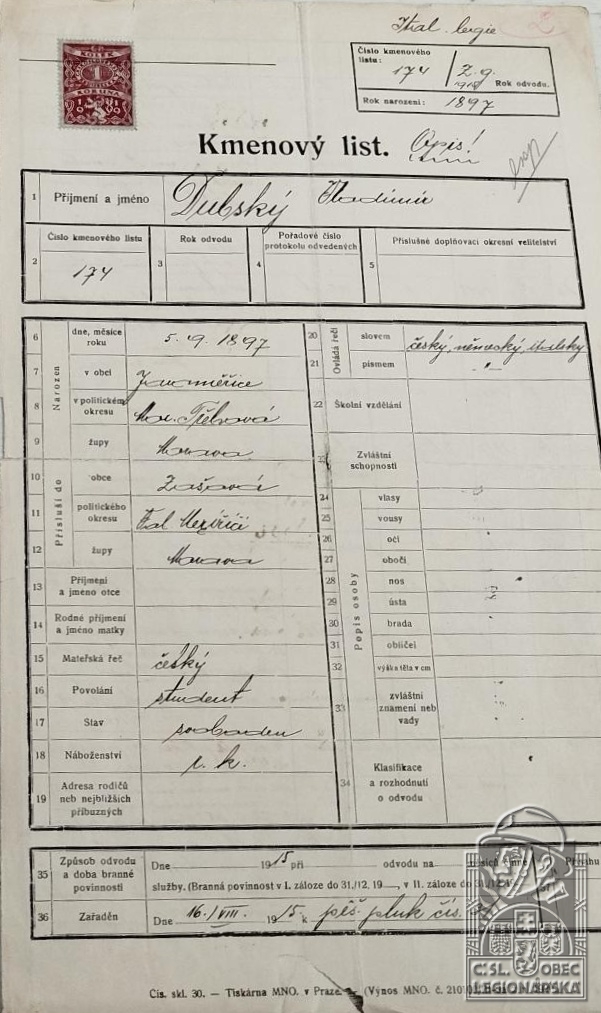 Ital. legie
2
KOLEK
1
KORUNA
1919
Číslo kmenového listu: 174 / Z. 9. 1918 Rok odvodu.
Rok narození: 1897
Kmenový list. Opis!
1 Příjmení a jméno Dubský Vladimír
2 Číslo kmenového listu 174
3 Rok odvodu
4 Pořadové číslo protokolu odvedených
5 Příslušné doplňovací okresní velitelství
Narozen
6 dne, měsíce roku 5. 9. 1897
7 v obci Jaroměřice
8 v politickém okresu Mor. Třebová
9 župy Morava
Přísluší do
10 obce Zašová
11 politického okresu Val Meziříčí
12 župy Morava
13 Příjmení a jméno otce
14 Rodné příjmení a jméno matky
15 Mateřská řeč český
16 Povolání student
17 Stav svoboden
18 Náboženství ř. k.
19 Adresa rodičů neb nejbližších příbuzných
Ovládá řeči
20 slovem český, německý, italsky
21 písmem "
22 Školní vzdělání
23 Zvláštní schopnosti
Popis osoby
24 vlasy
25 vousy
26 oči
27 obočí
28 nos
29 ústa
30 brada
31 obličej
32 výška těla v cm
33 zvláštní znamení neb vady
34 Klasifikace a rozhodnutí o odvodu
35 Způsob odvodu a doba branné povinnosti Dne 1915 při odvodu na měsíců činné
služby. (Branná povinnost v I. záloze do 31./12. 19—, v II. záloze do 31./12. 19
Přísahu
36 Zařaděn Dne 16./VIII. 1915 k pěš. pluk čís.
Čís. skl. 30. — Tiskárna MNO. v Praze. — (Výnos MNO. č. 21010
ČSL. OBEC
LEGIONÁŘSKÁ